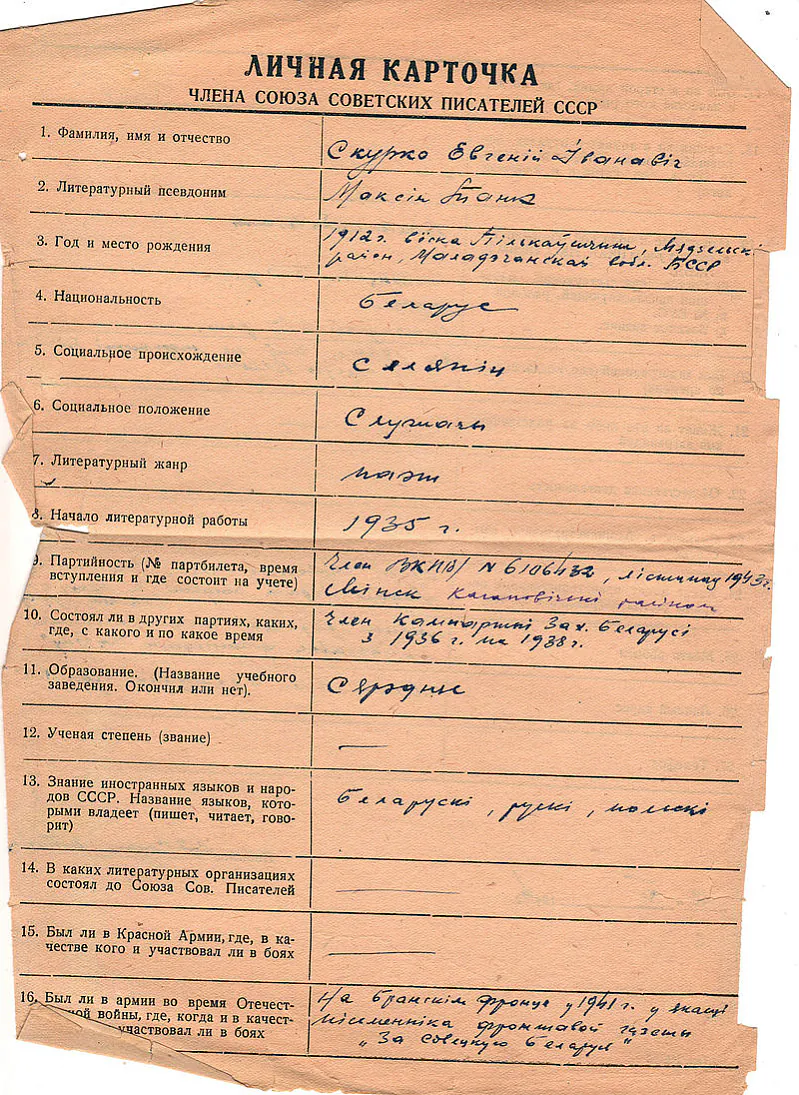 ЛИЧНАЯ КАРТОЧКА
ЧЛЕНА СОЮЗА СОВЕТСКИХ ПИСАТЕЛЕЙ СССР
1. Фамилия, имя и отчество
Скурко Евгеній Іванавіч
2. Литературный псевдоним
Максім Танк
3. Год и место рождения
1912 г. вёска Пількаўшчына, Мядзельскі
район, Маладэчанскай вобл. БССР
4. Национальность
Беларус
5. Социальное происхождение
Селянін
6. Социальное положение
Служачы
7. Литературный жанр
паэт
8. Начало литературной работы
1935 г.
9. Партийность (№ партбилета, время
вступления и где состоит на учете)
Член ВКП(б) № 6106432, лістапад 1943 г.
Мінск Кагановічскі райком
10. Состоял ли в других партиях, каких,
где, с какого и по какое время
Член Кампартыі Зах. Беларусі
з 1936 г. па 1938 г.
11. Образование. (Название учебного
заведения. Окончил или нет).
Сярэдняе
12. Ученая степень (звание)
—
13. Знание иностранных языков и наро-
дов СССР. Название языков, кото-
рыми владеет (пишет, читает, гово-
рит)
Беларускі, рускі, польскі
14. В каких литературных организациях
состоял до Союза Сов. Писателей
—
15. Был ли в Красной Армии, где, в ка-
честве кого и участвовал ли в боях
—
16. Был ли в армии во время Отечест-
ной войны, где, когда и в качест-
участвовал ли в боях
На Бранскім фронце у 1941 г. у якасці
пісьменніка фронтавой газеты
„За Совецкую Беларусь"